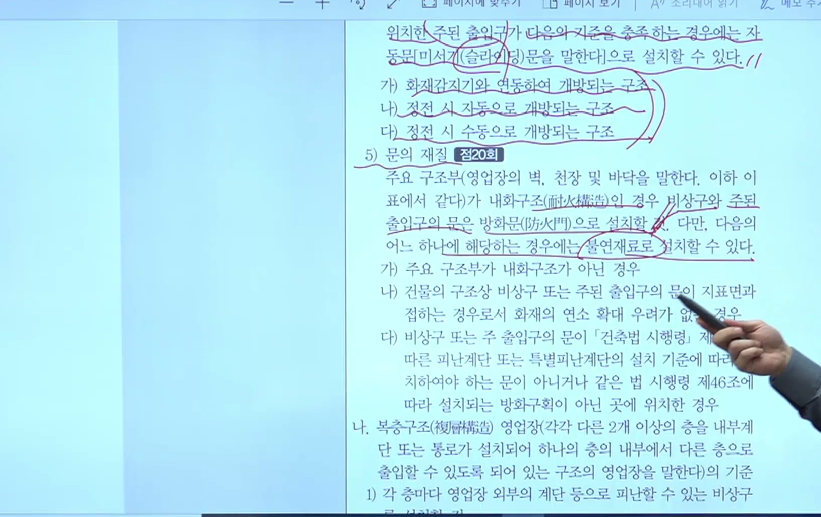 페이지에 맞추기 페이지 보기 소리내어 읽기 메모 추가
위치한 주된 출입구가 다음의 기준을 충족하는 경우에는 자
동문[미서기(슬라이딩)문을 말한다]으로 설치할 수 있다.
가) 화재감지기와 연동하여 개방되는 구조
나) 정전 시 자동으로 개방되는 구조
다) 정전 시 수동으로 개방되는 구조
5) 문의 재질 점20회
주요 구조부(영업장의 벽, 천장 및 바닥을 말한다. 이하 이
표에서 같다)가 내화구조(耐火構造)인 경우 비상구와 주된
출입구의 문은 방화문(防火門)으로 설치할 것. 다만, 다음의
어느 하나에 해당하는 경우에는 불연재료로 설치할 수 있다.
가) 주요 구조부가 내화구조가 아닌 경우
나) 건물의 구조상 비상구 또는 주된 출입구의 문이 지표면과
접하는 경우로서 화재의 연소 확대 우려가 없는 경우
다) 비상구 또는 주 출입구의 문이 「건축법 시행령」
따른 피난계단 또는 특별피난계단의 설치 기준에 따라
치하여야 하는 문이 아니거나 같은 법 시행령 제46조에
따라 설치되는 방화구획이 아닌 곳에 위치한 경우
나. 복층구조(複層構造) 영업장(각각 다른 2개 이상의 층을 내부계
단 또는 통로가 설치되어 하나의 층의 내부에서 다른 층으로
출입할 수 있도록 되어 있는 구조의 영업장을 말한다)의 기준
1) 각 층마다 영업장 외부의 계단 등으로 피난할 수 있는 비상구